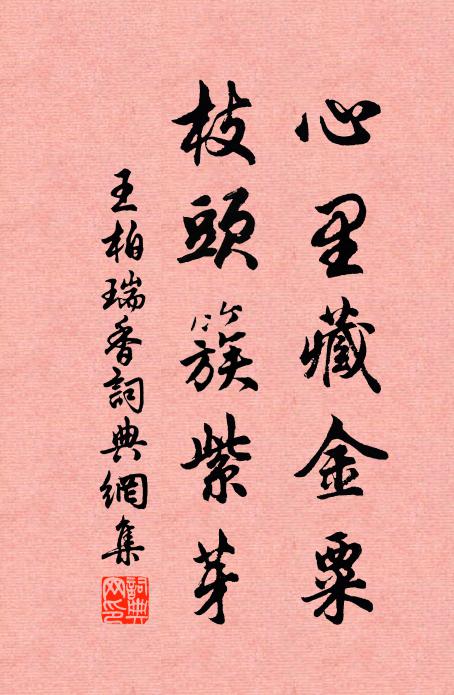 心里藏金粟
枝頭簇紫芽
王柏瑞香詞典網集
詞典網印